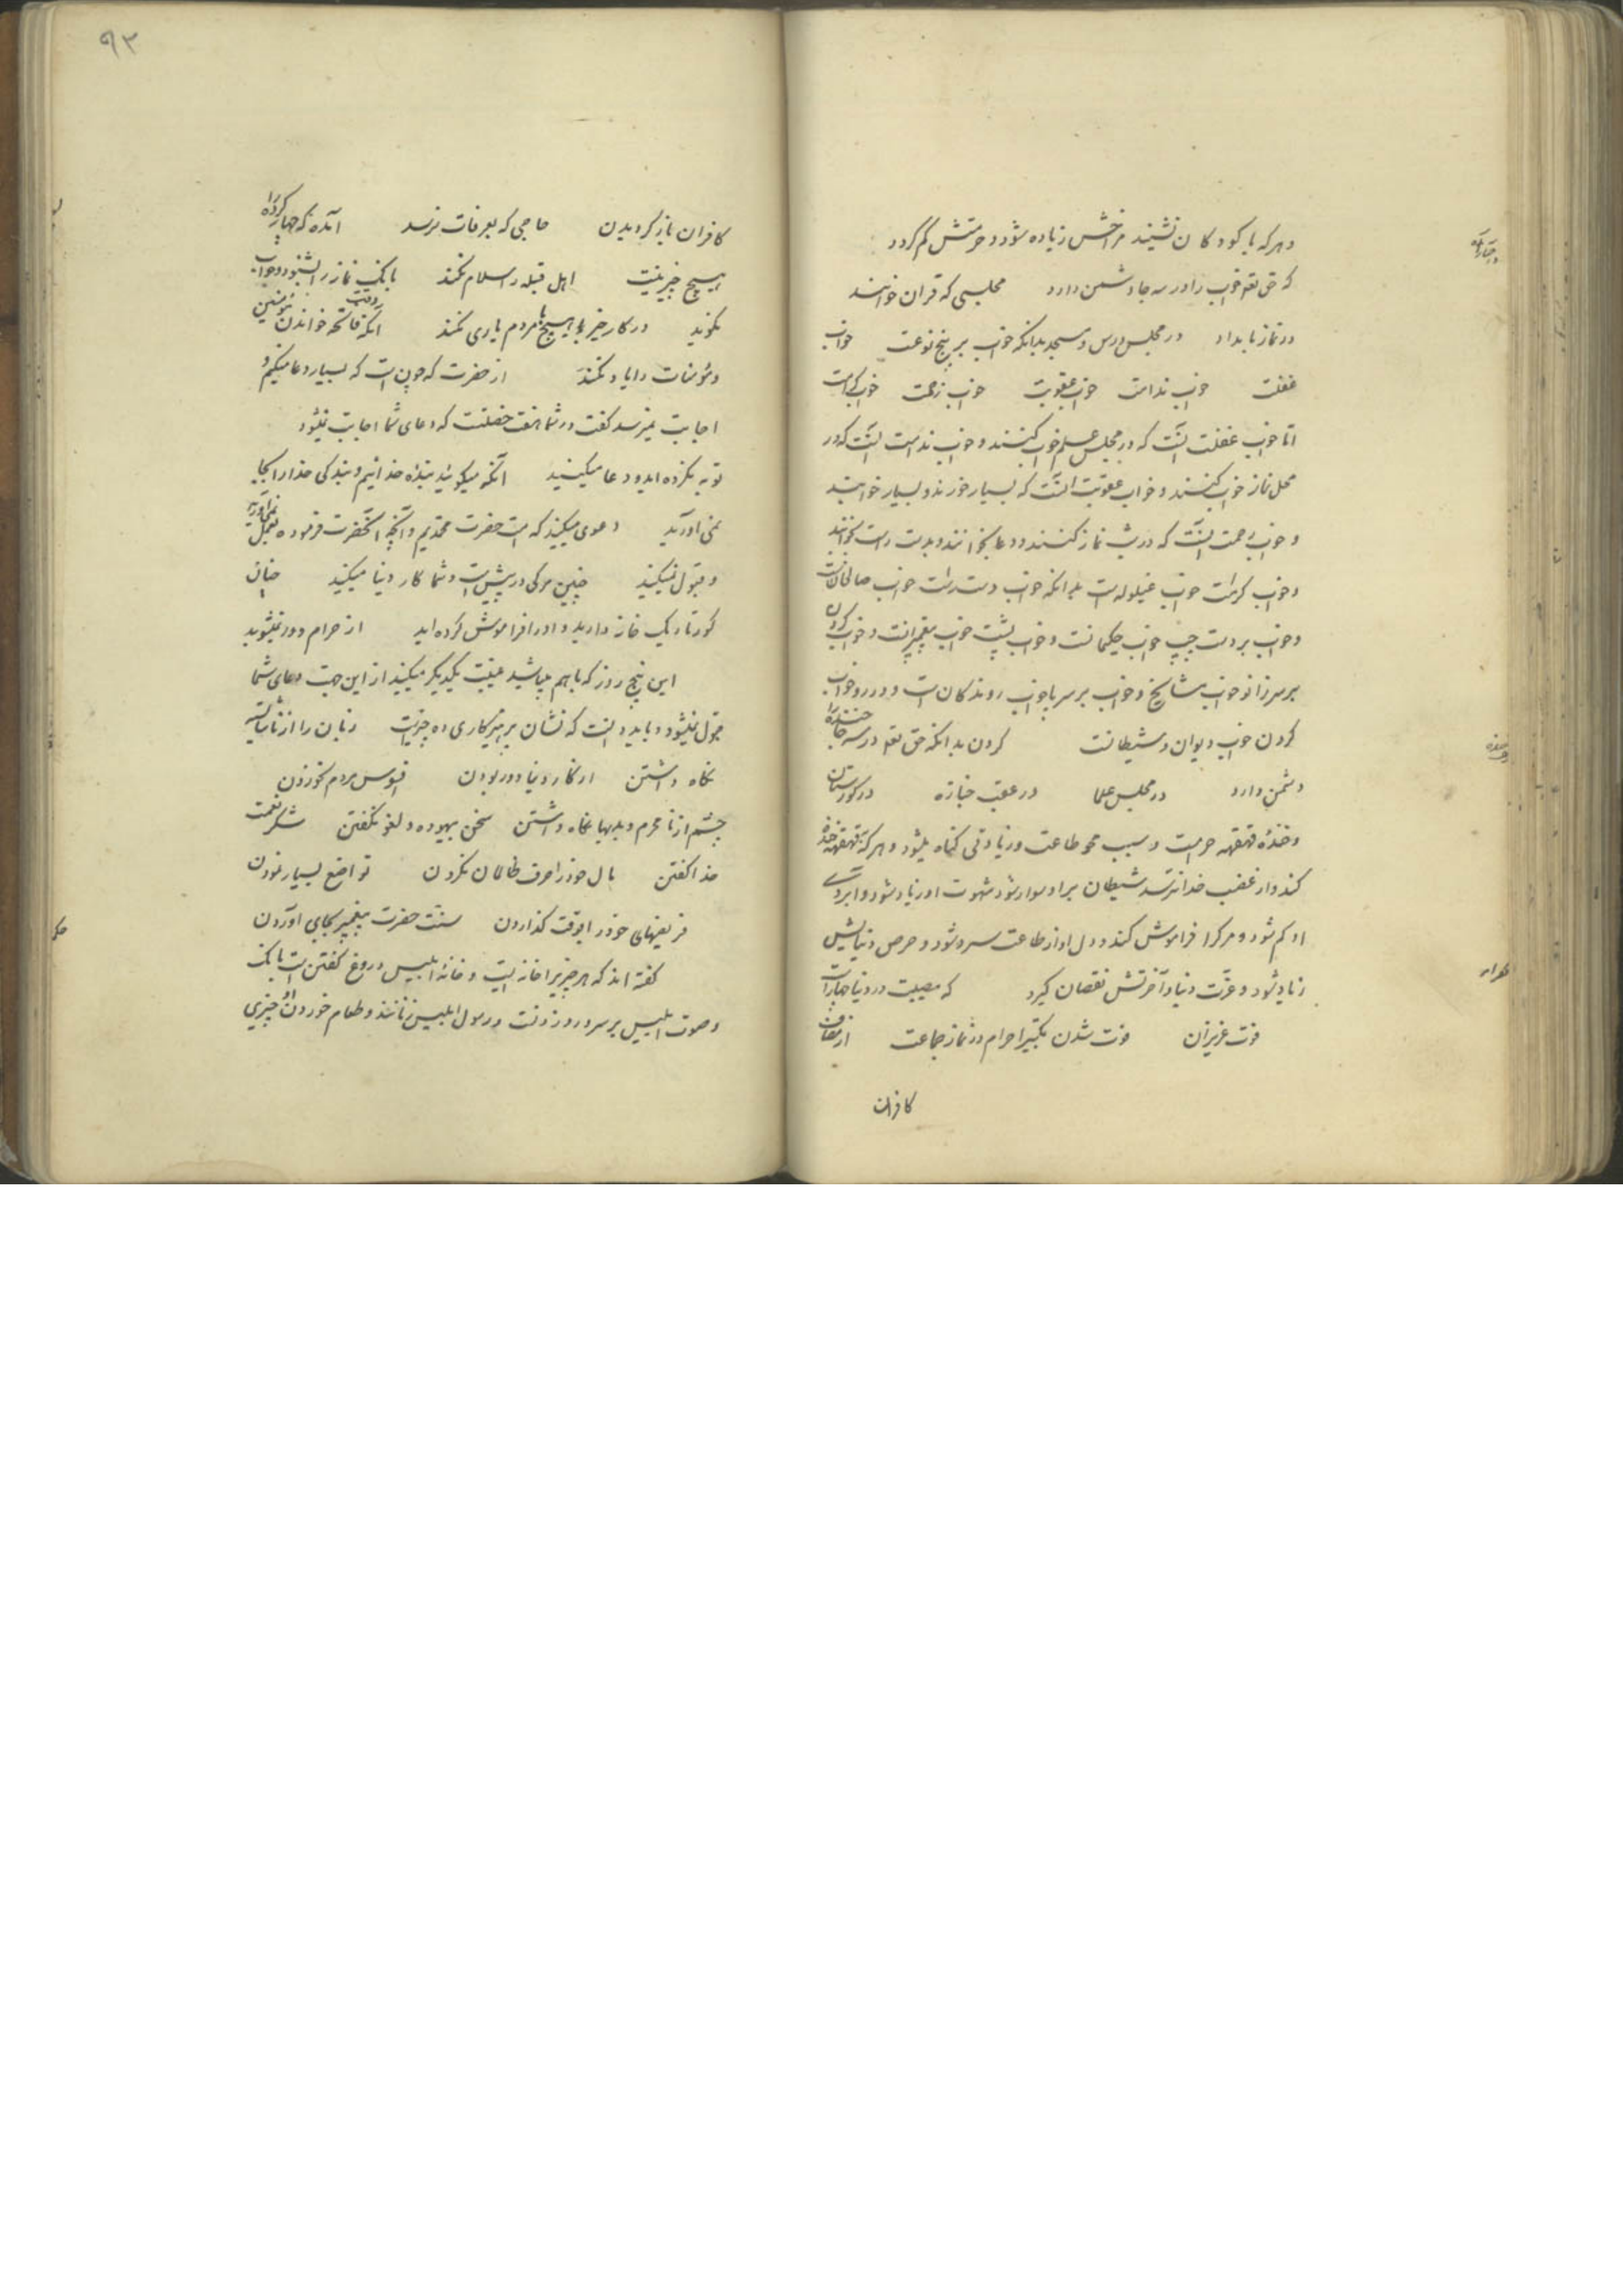 و هر که با کودکان نشیند مزاحش زیاده شود و حرمتش کم گردد
که حق تع خواب را در سه جا دشمن دارد مجلسی که قران خوانند
در نماز بامداد در مجلس درس و مسجد بدانکه خواب بر پنج نوعست خواب
غفلت خواب ندامت خواب عقوبت خواب رحمت خواب کرامت
اما خواب غفلت آنست که در مجلس علم خواب کنند و خواب ندامت آنست که در
محل نماز خواب کنند و خواب عقوبت آنست که بسیار خورند و بسیار خوابند
و خواب رحمت آنست که در شب نماز کنند و دعا بخوانند و بدست راست بخوابند
و خواب کرامت خواب غیلوله است بدانکه خواب دست راست خواب صالحانست
و خواب بر دست چپ خواب حکیمانست و خواب پشت خواب پیغمبرانست و خواب کردن
بر سر زانو خواب مشایخ و خواب بر سر پا خواب روندکان است و در رو خواب
کردن خواب دیوان و شیطانست کردن بدانکه حق تع در سه جا خنده را
دشمن دارد در مجلس علما در عقب جنازه در کورستان
و خندهٔ قهقهه حرامست و سبب محو طاعت و زیادتی کناه میشود و هر که قهقهه خنده
کند و از غضب خدا نترسد شیطان بر او سوار شود شهوت او زیاد شود و ابروی
او کم شود و مرک را فراموش کند و دل او از طاعت سرد شود و حرص دنیایش
زیاد شود و عزت دنیا و آخرتش نقصان کیرد که مصیبت در دنیا چهار است
فوت عزیزان فوت شدن تکبیر احرام در نماز جماعت از مصاف
کافران
۹۳
کافران باز کردیدن حاجی که بعرفات نرسد آمده که چهار کروه را
هیچ خیر نیست اهل قبله را سلام نکند بانک نماز را بشنود و جواب
نکوید در کار خیر با هیچ مردم یاری نکند آنکه فاتحه خواندن مؤمنین
و مؤمنات را یاد نکند از حضرت که چون است که بسیار دعا میکنیم و
اجابت نمیرسد کفت در شما هفت خصلتست که دعای شما اجابت نمیشود
توبه نکرده اید و دعا میکنید آنکه میکوئید بنده خدائیم و بندکی خدا را بجا
نمی اورید دعوی میکنید که امت حضرت محمدیم و آنچه آنحضرت فرموده بعمل نمی آورید
و قبول نمیکنید چنین مرکی در پیش است و شما کار دنیا میکنید چنان
کور تاریک خانه دارید و او را فراموش کرده اید از حرام دور نمیشوید
این پنج روز که با هم میباشید غیبت یکدیکر میکنید از این جهت دعای شما
قبول نمیشود و باید دانست که نشان پرهیزکاری ده چیز است زبان را از ناشایسته
نکاه داشتن از کار دنیا دور بودن افسوس مردم نخوردن
چشم از نامحرم و بدیها نکاه داشتن سخن بیهوده و لغو نکفتن شکر نعمت
خدا کفتن مال خود را صرف ظالمان نکردن تواضع بسیار نمودن
فریضهای خود را بوقت کذاردن سنت حضرت پیغمبر بجای آوردن
کفته اند که هر چیزیرا خانه ایست و خانهٔ ابلیس دروغ کفتن است بانک
و صوت ابلیس بر سرود زدنست و رسول ابلیس زنانند و طعام خوردن او چیزی